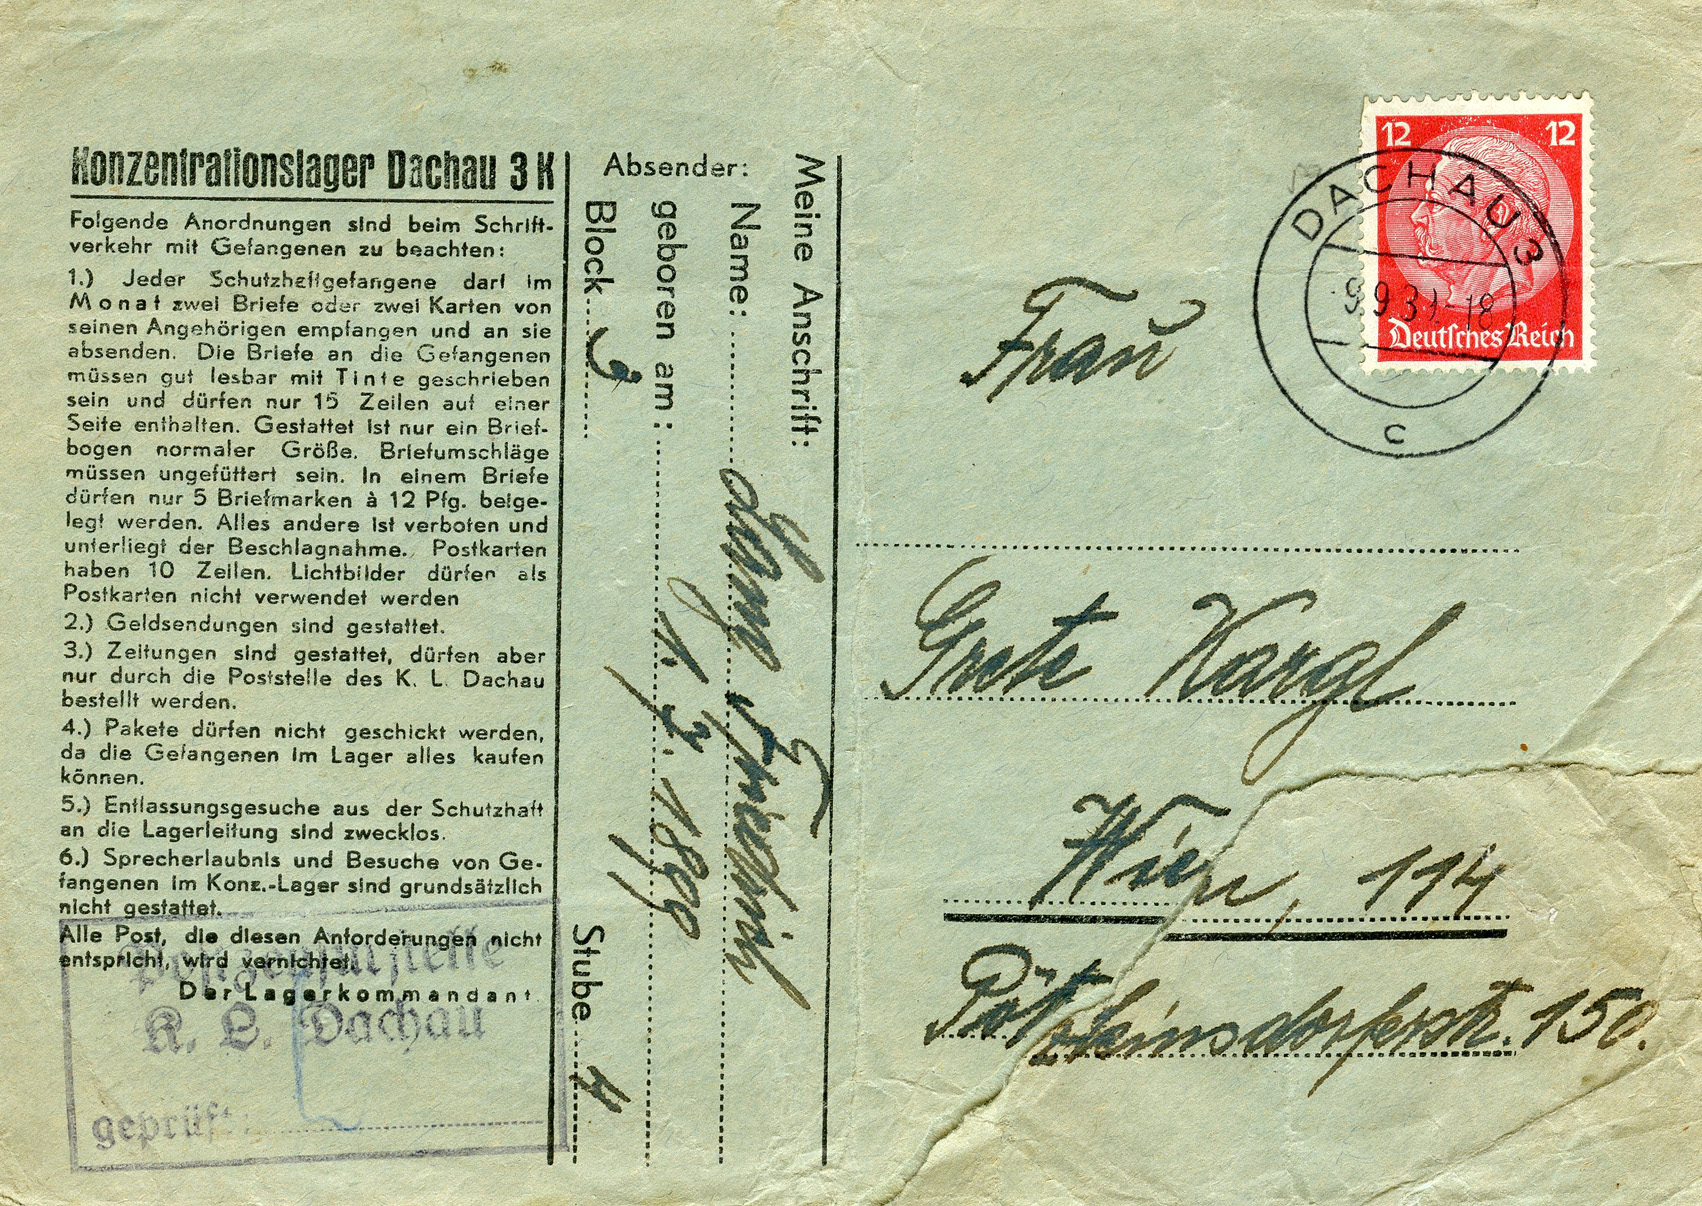 Konzentrationslager Dachau 3 K
Folgende Anordnungen sind beim Schrift-
verkehr mit Gefangenen zu beachten:
1.) Jeder Schutzhaftgefangene darf im
Monat zwei Briefe oder zwei Karten von
seinen Angehörigen empfangen und an sie
absenden. Die Briefe an die Gefangenen
müssen gut lesbar mit Tinte geschrieben
sein und dürfen nur 15 Zeilen auf einer
Seite enthalten. Gestattet ist nur ein Brief-
bogen normaler Größe. Briefumschläge
müssen ungefüttert sein. In einem Briefe
dürfen nur 5 Briefmarken à 12 Pfg. beige-
legt werden. Alles andere ist verboten und
unterliegt der Beschlagnahme. Postkarten
haben 10 Zeilen. Lichtbilder dürfen als
Postkarten nicht verwendet werden
2.) Geldsendungen sind gestattet.
3.) Zeitungen sind gestattet, dürfen aber
nur durch die Poststelle des K. L. Dachau
bestellt werden.
4.) Pakete dürfen nicht geschickt werden,
da die Gefangenen im Lager alles kaufen
können.
5.) Entlassungsgesuche aus der Schutzhaft
an die Lagerleitung sind zwecklos.
6.) Sprecherlaubnis und Besuche von Ge-
fangenen im Konz.-Lager sind grundsätzlich
nicht gestattet.
Alle Post, die diesen Anforderungen nicht
entspricht, wird vernichtet.
Der Lagerkommandant
Postzensurstelle
K. L. Dachau
geprüft:
Absender:
Meine Anschrift:
Name: Friedrich
geboren am: 1. 7. 1899
Block 9 Stube 4
12 12
Deutsches Reich
DACHAU 3
9.9.39-18
c
Frau
Grete Kargl
Wien, 114
Pötzleinsdorferstr. 150.